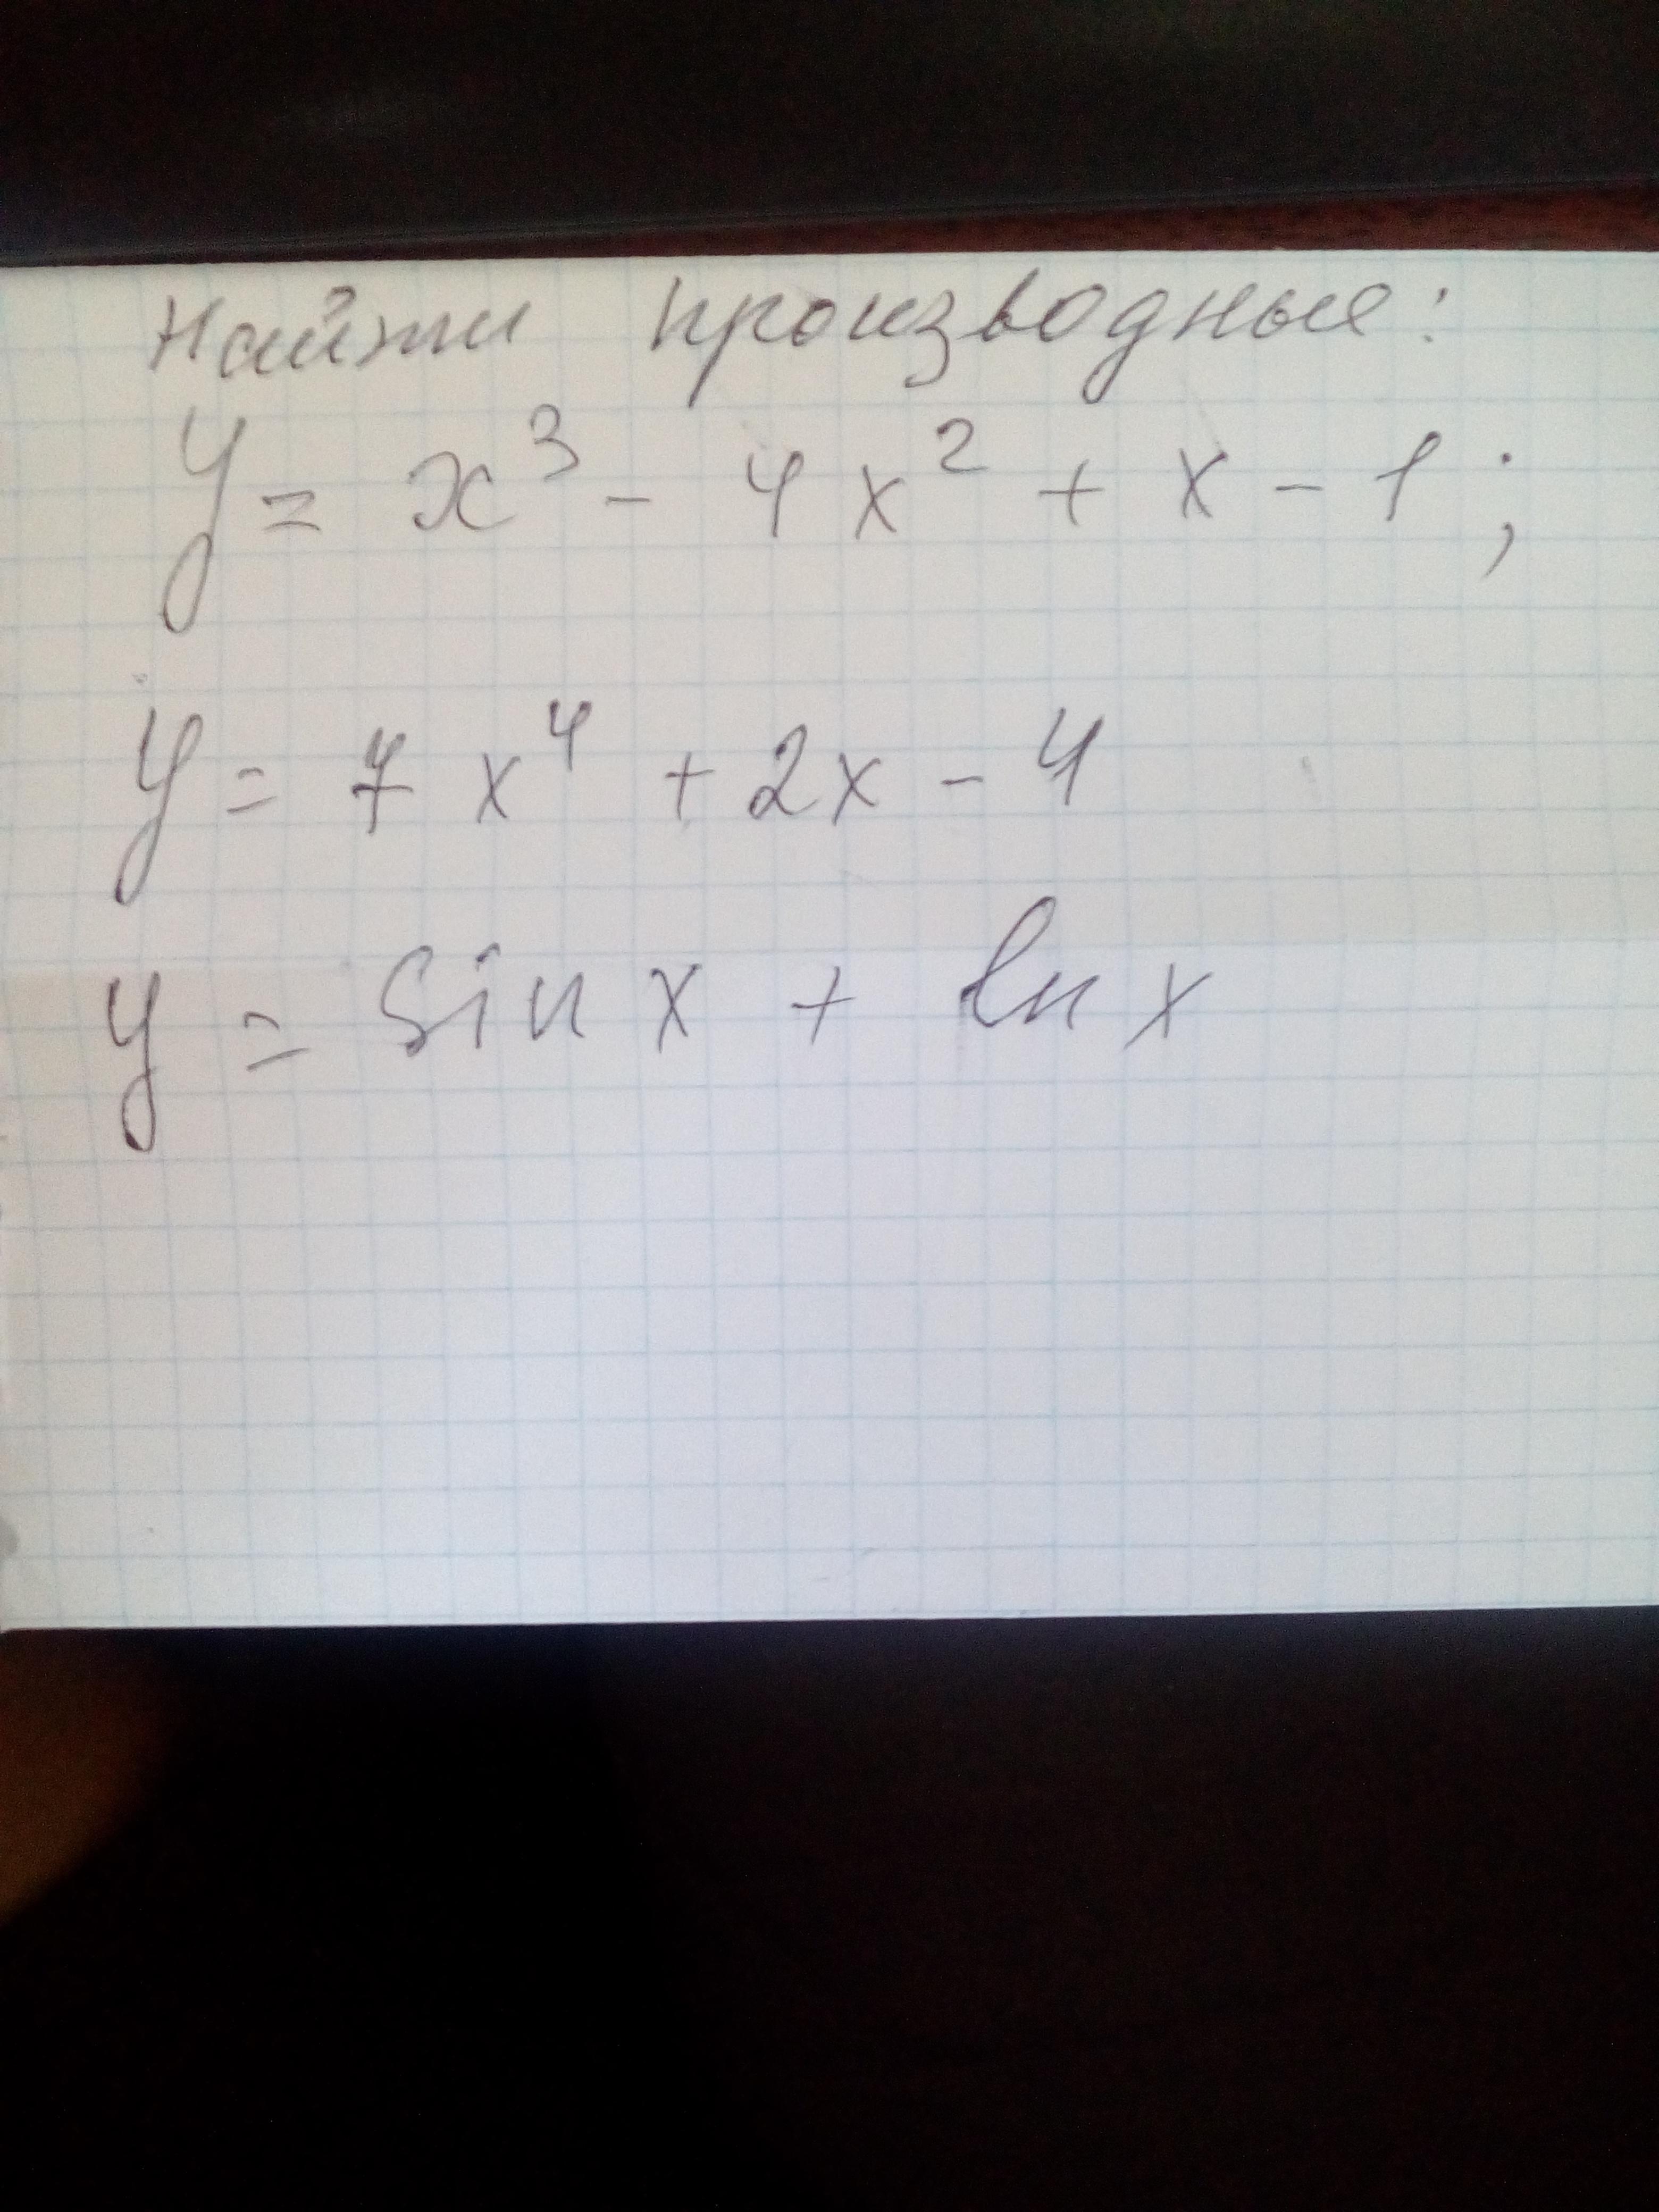 Найти производные:
y = x³ - 4x² + x - 1;
y = 7x⁴ + 2x - 4
y = sin x + ln x